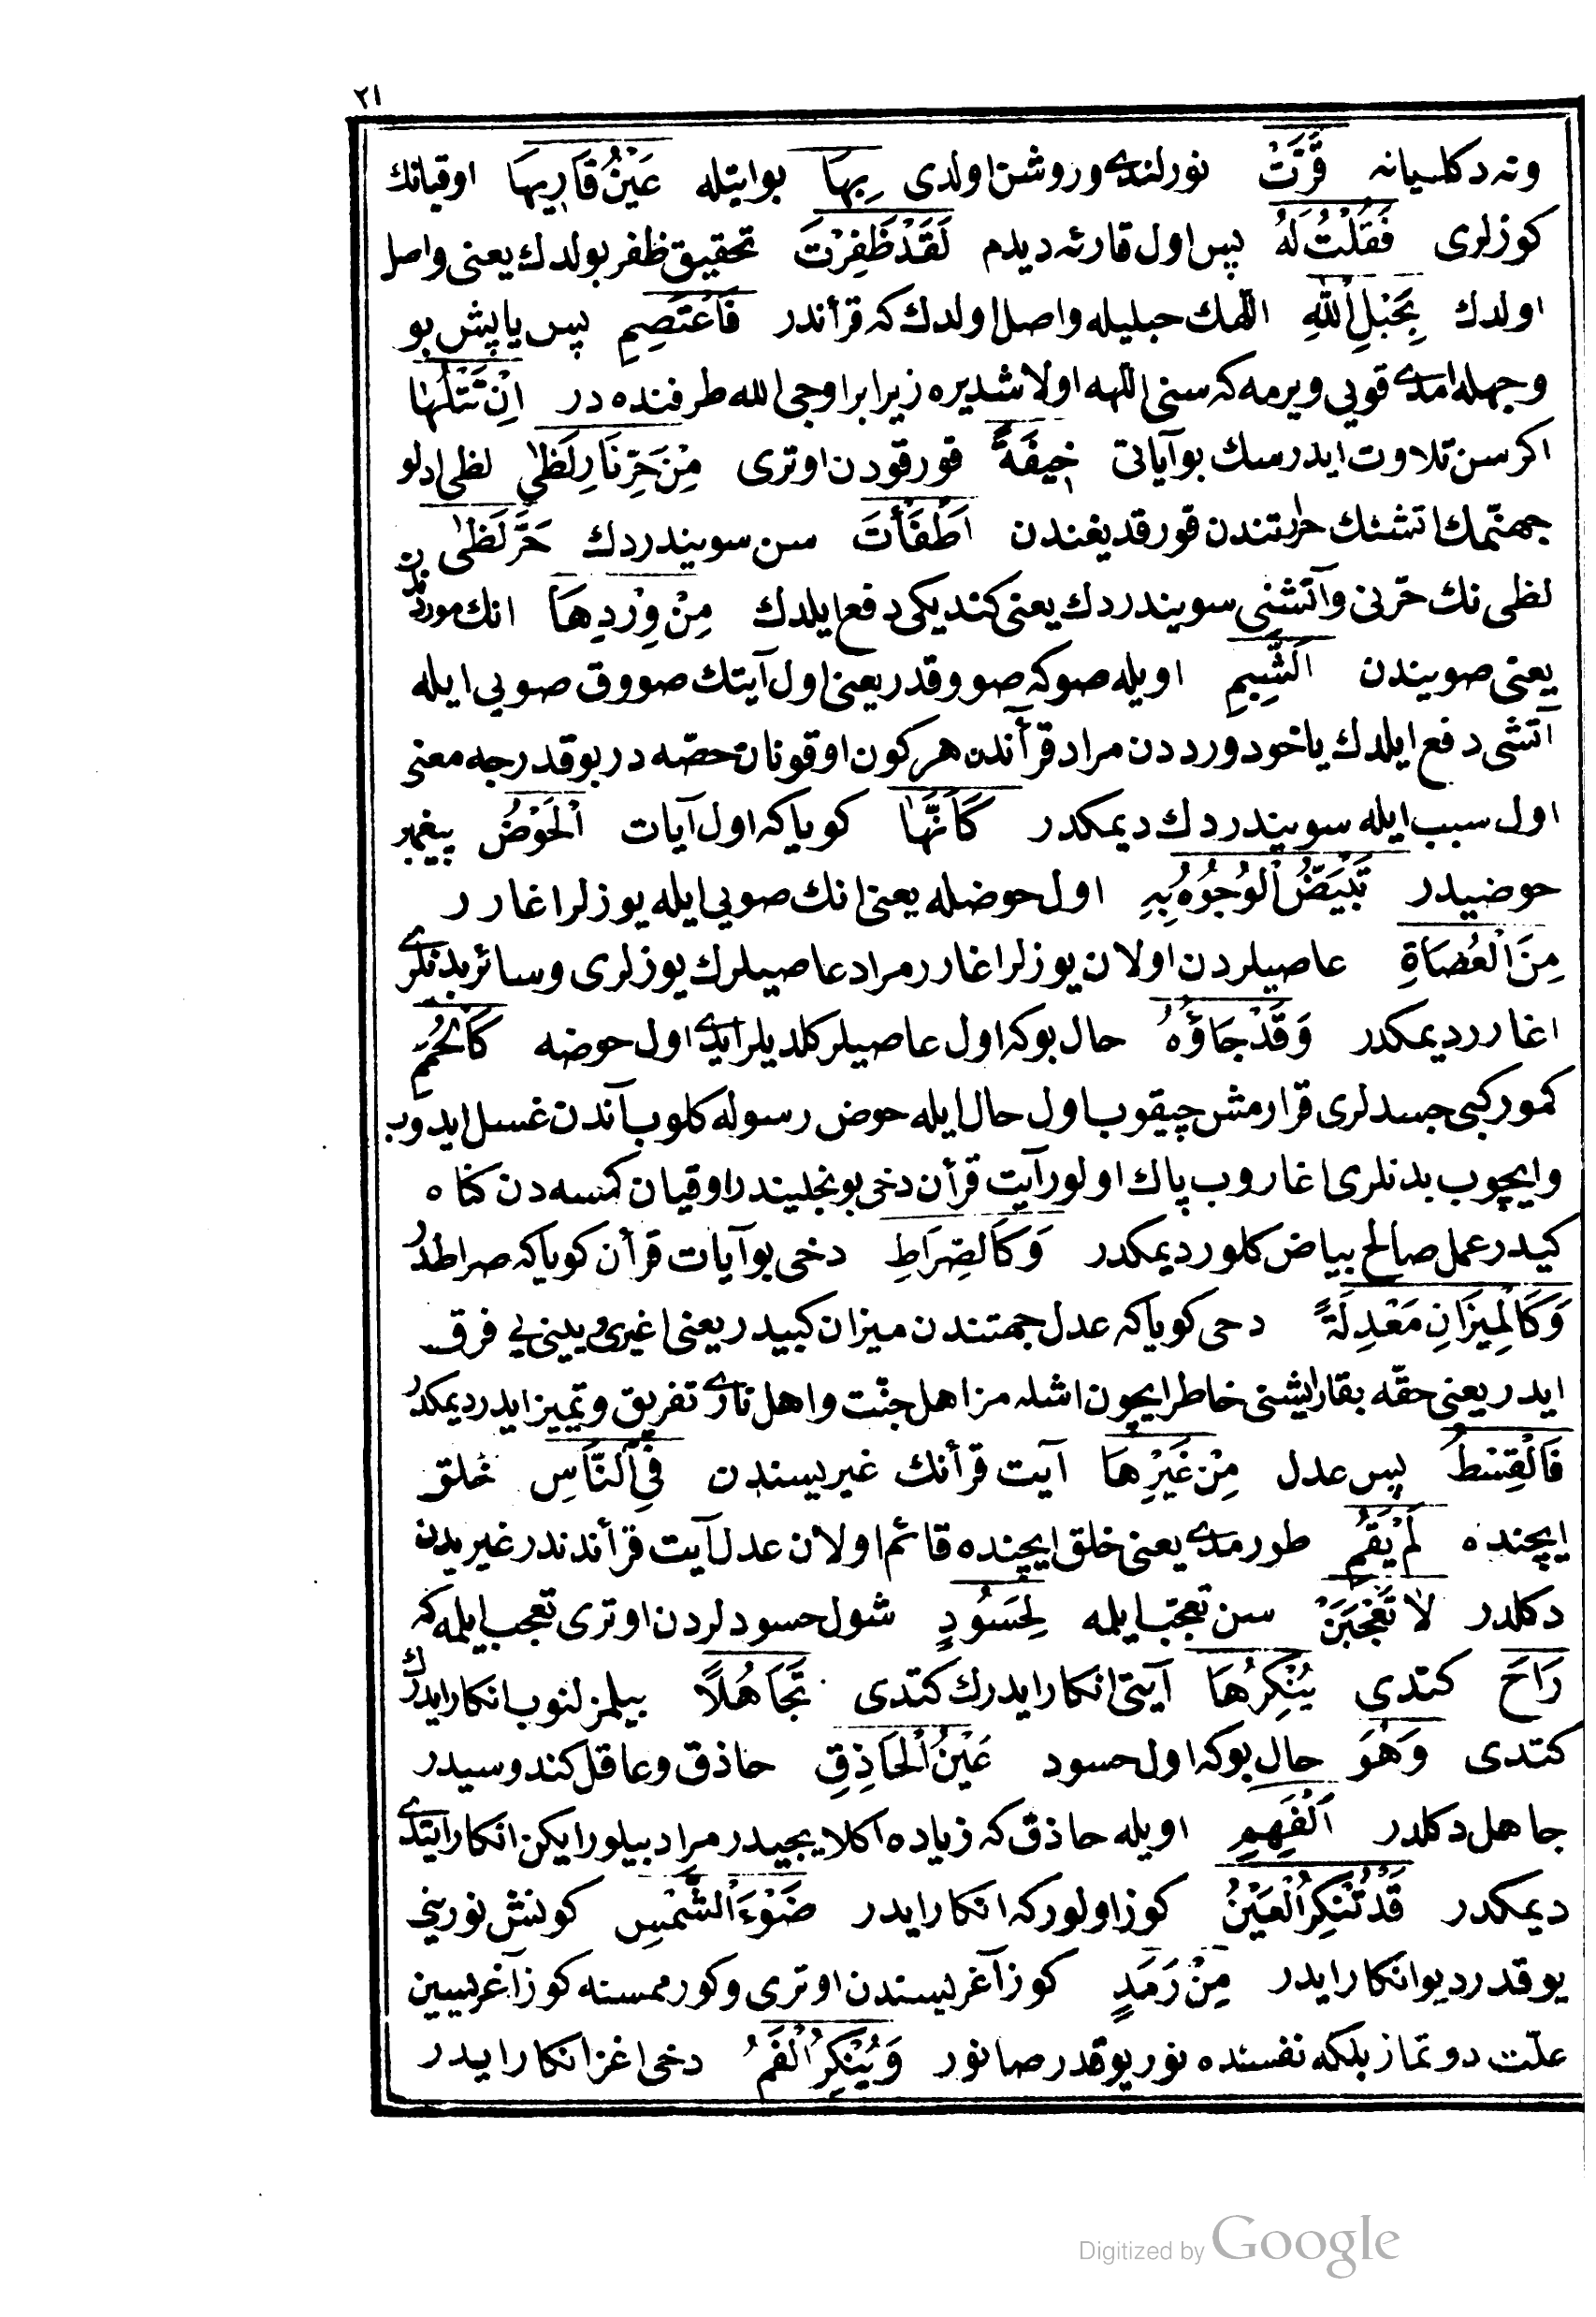 ٢١
ونه دكلسیانه قَرَّتْ نورلندی وروشن اولدی بِهَا بوایتله عَيْنُ قَارِيهَا اوقیانك
كوزلری فَقُلْتُ لَهُ پس اول قارئه دیدم لَقَدْ ظَفِرْتَ تحقیق ظفر بولدك یعنی واصل
اولدك بِحَبْلِ اللّٰهِ اللهك حبلیله واصل اولدك كه قرأندر فَاعْتَصِمِ پس یاپش بو
وجهله امدی قویی ویرمه كه سنی اللهه اولاشدیره زیرا بر اوجی الله طرفنده در اِنْ تَتْلُهَا
اكر سن تلاوت ایدرسك بوآیاتی خِيفَةً قورقودن اوتری مِنْ حَرِّ نَارِ لَظٰى لظی ادلو
جهنّمك اتشنك حرارتندن قورقدیغندن اَطْفَأْتَ سن سویندردك حَرَّ لَظٰى
لظی نك حرّنی وآتشنی سویندردك یعنی كندیكی دفع ایلدك مِنْ وِرْدِهَا انك موردندن
یعنی صویندن اَلشَّبِمِ اویله صوكه صووقدر یعنی اول آیتك صووق صویی ایله
آتشی دفع ایلدك یاخود ورددن مراد قرأندن هركون اوقونان حصّه در بوقدرجه معنی
اول سبب ایله سویندردك دیمكدر كَاَنَّهَا كویاكه اول آیات اَلْحَوْضُ پیغمبر
حوضیدر تَبْيَضُّ الْوُجُوهُ بِهِ اول حوضله یعنی انك صویی ایله یوزلر اغارر
مِنَ الْعُصَاةِ عاصیلردن اولان یوزلر اغارر مراد عاصیلرك یوزلری وسائر بدنلری
اغارر دیمكدر وَقَدْ جَاؤُهُ حال بوكه اول عاصیلر كلدیلر ایدی اول حوضه كَالْحُمَمِ
كمور كبی جسدلری قرارمش چیقوب اول حال ایله حوض رسوله كلوب آندن غسل ایدوب
وایچوب بدنلری اغاروب پاك اولور آیت قرأن دخی بونجلیندر اوقیان كمسه دن كناه
كیدر عمل صالح بیاض كلور دیمكدر وَكَالصِّرَاطِ دخی بوآیات قرأن كویاكه صراطدر
وَكَالْمِيزَانِ مَعْدِلَةً دحی كویاكه عدل جهتندن میزان كبیدر یعنی اغیری ویینی یی فرق
ایدر یعنی حقّه بقار ایشنی خاطر ایچون اشلمز اهل جنّت واهل ناری تفریق وتمییز ایدر دیمكدر
فَالْقِسْطُ پس عدل مِنْ غَيْرِهَا آیت قرأنك غیریسندن فِي النَّاسِ خلق
ایچنده لَمْ يَقُمِ طورمدی یعنی خلق ایچنده قائم اولان عدل آیت قرأندندر غیریدن
دكلدر لَا تَعْجَبَنْ سن تعجّب ایلمه لِحَسُودٍ شول حسودلردن اوتری تعجب ایلمه كه
رَاحَ كتدی يُنْكِرُهَا آیتی انكار ایدرك كتدی تَجَاهُلًا بیلمزلنوب انكار ایدرك
كتدی وَهْوَ حال بوكه اول حسود عَيْنُ الْحَاذِقِ حاذق وعاقل كندوسیدر
جاهل دكلدر اَلْفَهِمِ اویله حاذق كه زیاده اكلایجیدر مراد بیلور ایكن انكار ایتدی
دیمكدر قَدْ تُنْكِرُ الْعَيْنُ كوز اولور كه انكار ایدر ضَوْءَ الشَّمْسِ كونش نورینی
یوقدر دیو انكار ایدر مِنْ رَمَدٍ كوز آغریسندن اوتری وكورممسنه كوز آغریسین
علّت دوتماز بلكه نفسنده نور یوقدر صانور وَيُنْكِرُ الْفَمُ دخی اغز انكار ایدر
Digitized by Google